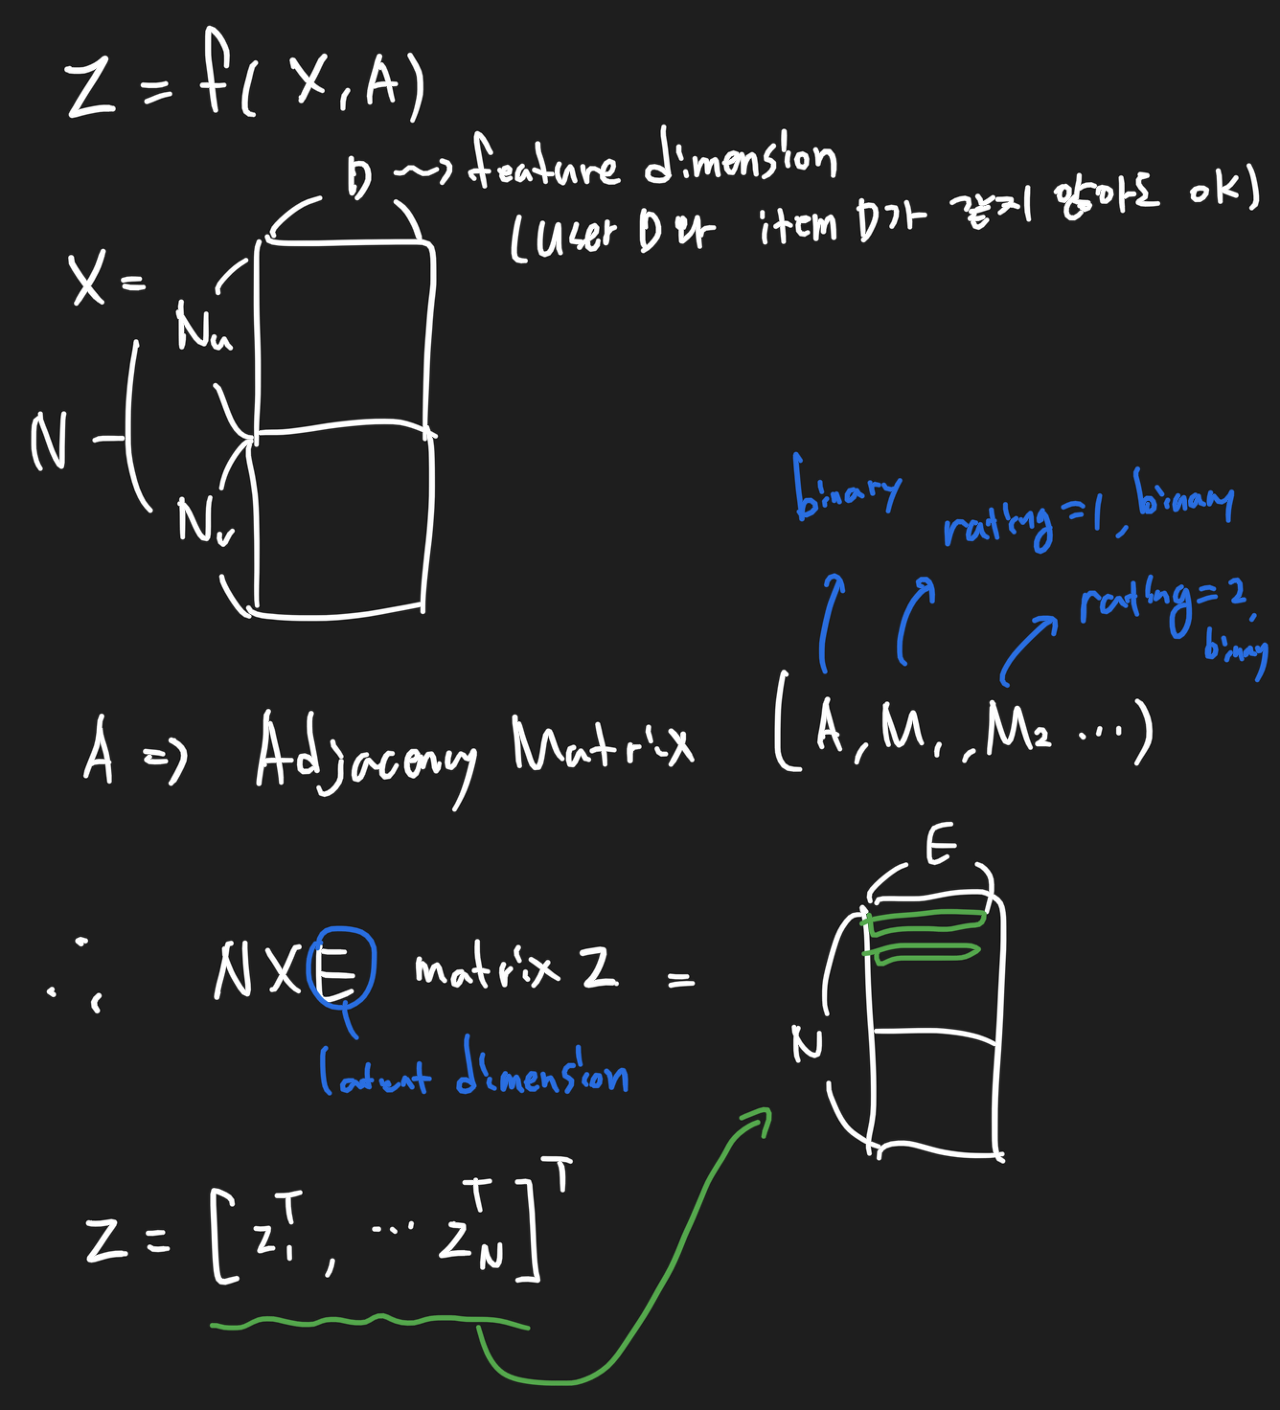 Z = f(X, A)
D ~> feature dimension
(user D와 item D가 같지 않아도 OK)
X =
Nu
N
Nv
binary
rating=1, binary
rating=2, binary
A => Adjacency Matrix (A, M1, M2 ...)
E
∴ N×E matrix Z =
N
latent dimension
Z = [z1^T, ... zN^T]^T